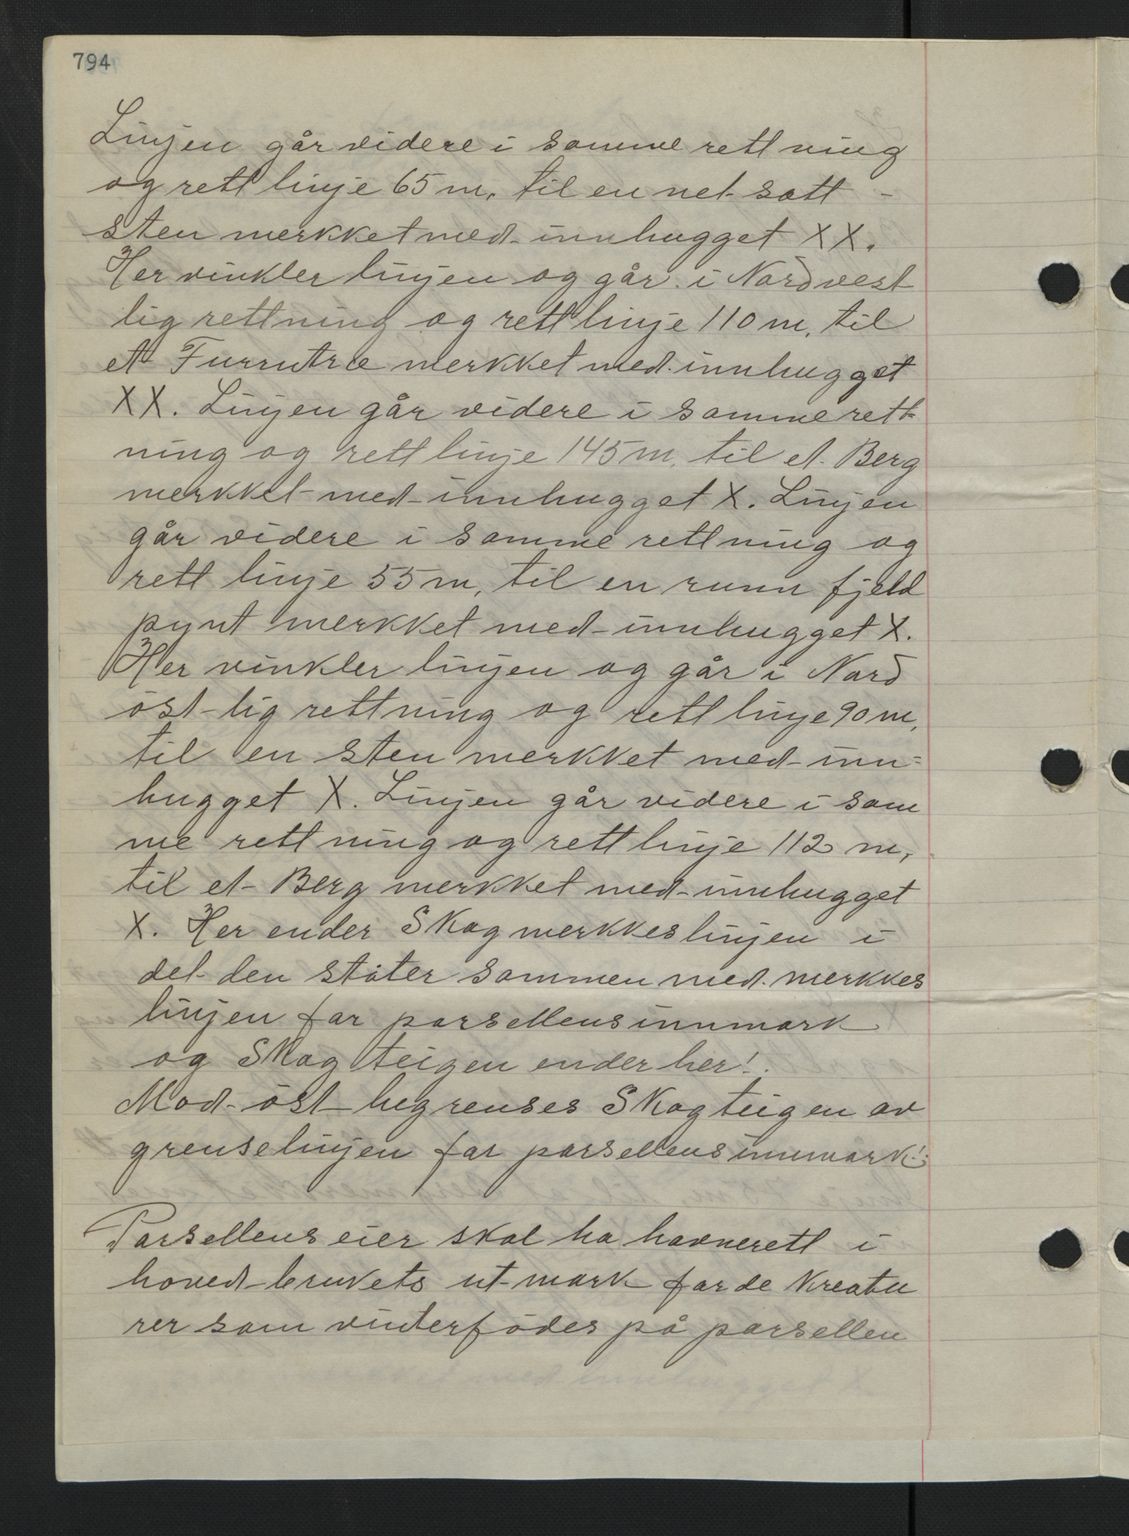 794
Linjen går videre i samme rettning
og rett linje 65 m, til en net satt -
sten merkket med innhugget XX.
Her vinkler linjen og går i Nordvest
lig rettning og rett linje 110 m, til
et Furrutræ merkket med innhugget
XX. Linjen går videre i samme rett-
ning og rett linje 145 m, til et Berg
merkket med innhugget X. Linjen
går videre i samme rettning og
rett linje 55 m, til en runn fjeld
pynt merkket med innhugget X.
Her vinkler linjen og går i Nord
östlig rettning og rett linje 90 m,
til en sten merkket med inn=
hugget X. Linjen går videre i sam
me rettning og rett linje 112 m,
til et Berg merkket med innhugget
X. Her ender Skogmerkkeslinjen i
det den stöter sammen med merkkes
linjen far parsellens innmark
og Skog teigen ender her!.
Mod öst begrenses Skogteigen av
grenselinjen far parsellens innmark!.
Parsellens eier skal ha havnerett i
hovedbrukets utmark far de Kreatu
rer sam vinterfödes på parsellen